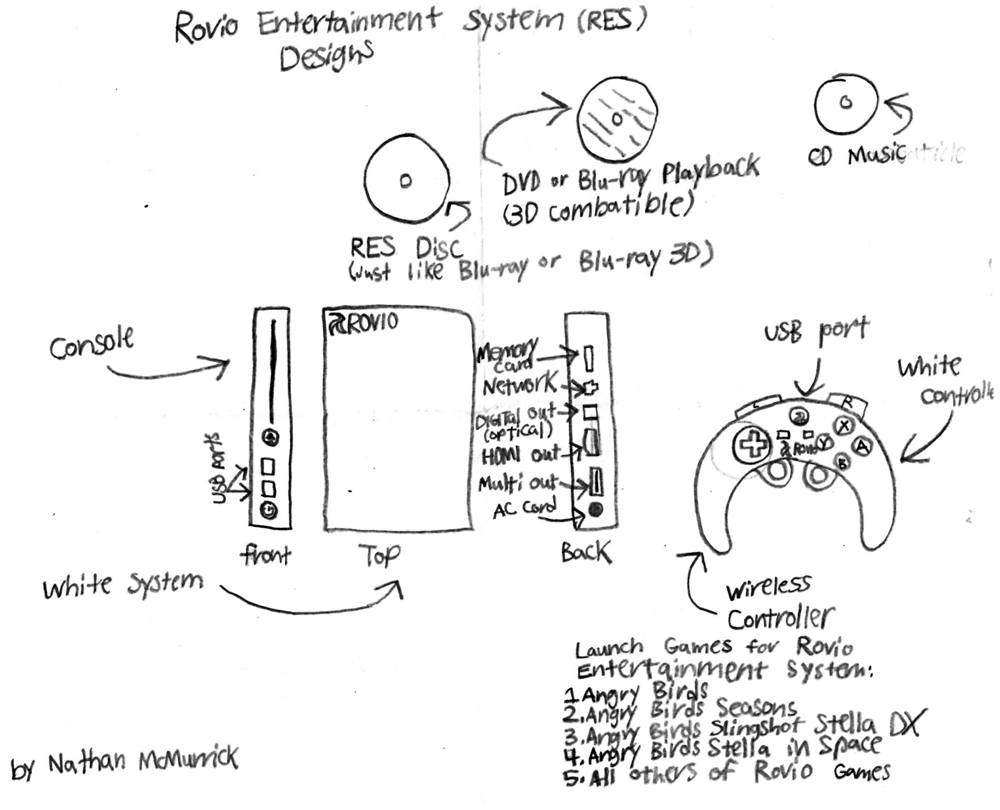 Rovio Entertainment System (RES)
Designs
CD Music
DVD or Blu-ray Playback
(3D combatible)
RES Disc
(Just like Blu-ray or Blu-ray 3D)
Console
ROVIO
USB Ports
front
Top
White System
Memory
card
Network
Digital out
(optical)
HDMI out
Multi out
AC Cord
Back
USB port
White
Controlle
L
R
X
Y
A
B
Rovio
Wireless
Controller
Launch Games for Rovio
Entertainment System:
1 Angry Birds
2. Angry Birds Seasons
3. Angry Birds Slingshot Stella DX
4. Angry Birds Stella in Space
5. All others of Rovio Games
by Nathan McMurrick